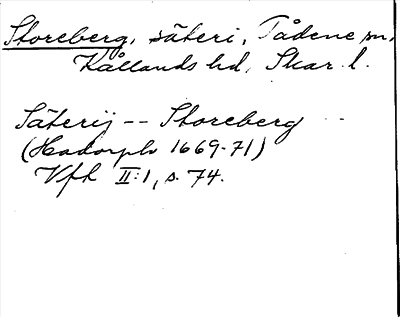 Storeberg, säteri, Tådene sn,
Kållands hd, Skar. l.
Säterij -- Storeberg --
(Hadorph 1669-71)
Vfh II:1, s. 74.